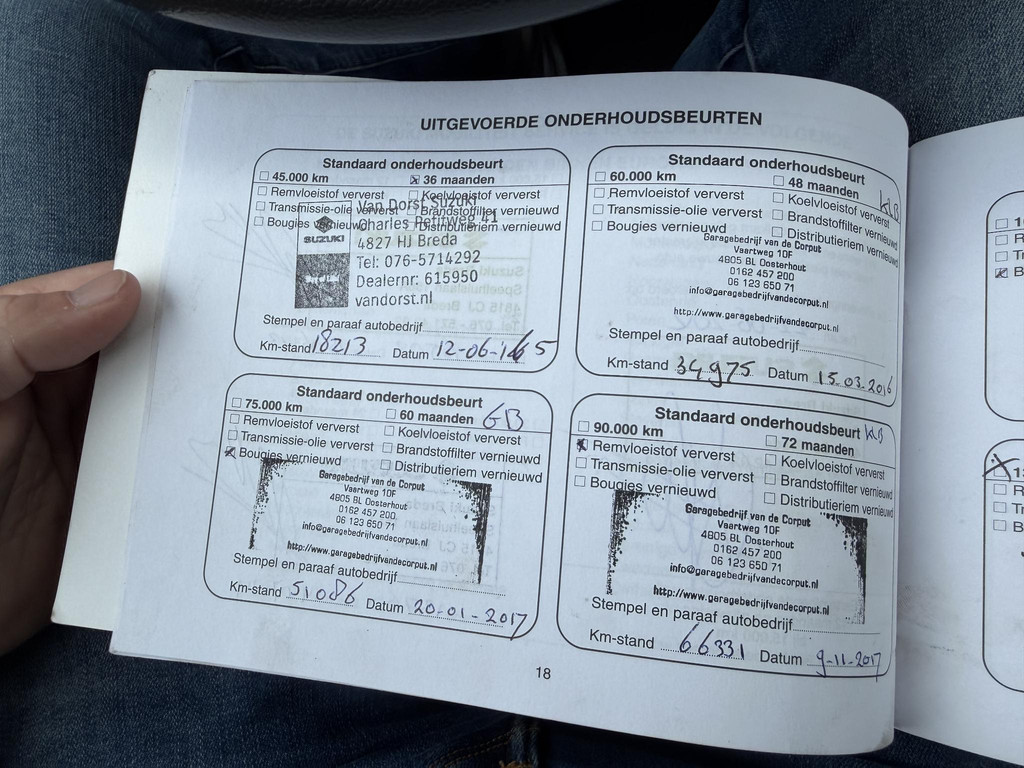 UITGEVOERDE ONDERHOUDSBEURTEN
Standaard onderhoudsbeurt
45.000 km 36 maanden
Remvloeistof ververst Koelvloeistof ververst
Transmissie-olie ververst Brandstoffilter vernieuwd
Bougies vernieuwd Distributieriem vernieuwd
Van Dorst Suzuki
Charles Petitweg 41
4827 HJ Breda
Tel: 076-5714292
Dealernr: 615950
vandorst.nl
SUZUKI
Stempel en paraaf autobedrijf
Km-stand 18213 Datum 12-06-
Standaard onderhoudsbeurt
60.000 km 48 maanden KLB
Remvloeistof ververst Koelvloeistof ververst
Transmissie-olie ververst Brandstoffilter vernieuwd
Bougies vernieuwd Distributieriem vernieuwd
Garagebedrijf van de Corput
Vaartweg 10F
4905 BL Oosterhout
0162 457 200
06 123 650 71
info@garagebedrijfvandecorput.nl
http://www.garagebedrijfvandecorput.nl
Stempel en paraaf autobedrijf
Km-stand 34975 Datum 15.03.2016
Standaard onderhoudsbeurt
75.000 km 60 maanden GB
Remvloeistof ververst Koelvloeistof ververst
Transmissie-olie ververst Brandstoffilter vernieuwd
Bougies vernieuwd Distributieriem vernieuwd
Garagebedrijf van de Corput
Vaartweg 10F
4905 BL Oosterhout
0162 457 200
06 123 650 71
info@garagebedrijfvandecorput.nl
http://www.garagebedrijfvandecorput.nl
Stempel en paraaf autobedrijf
Km-stand 51086 Datum 20-01-2017
Standaard onderhoudsbeurt KLB
90.000 km 72 maanden
Remvloeistof ververst Koelvloeistof ververst
Transmissie-olie ververst Brandstoffilter vernieuwd
Bougies vernieuwd Distributieriem vernieuwd
Garagebedrijf van de Corput
Vaartweg 10F
4905 BL Oosterhout
0162 457 200
06 123 650 71
info@garagebedrijfvandecorput.nl
http://www.garagebedrijfvandecorput.nl
Stempel en paraaf autobedrijf
Km-stand 66331 Datum 9-11-2017
18